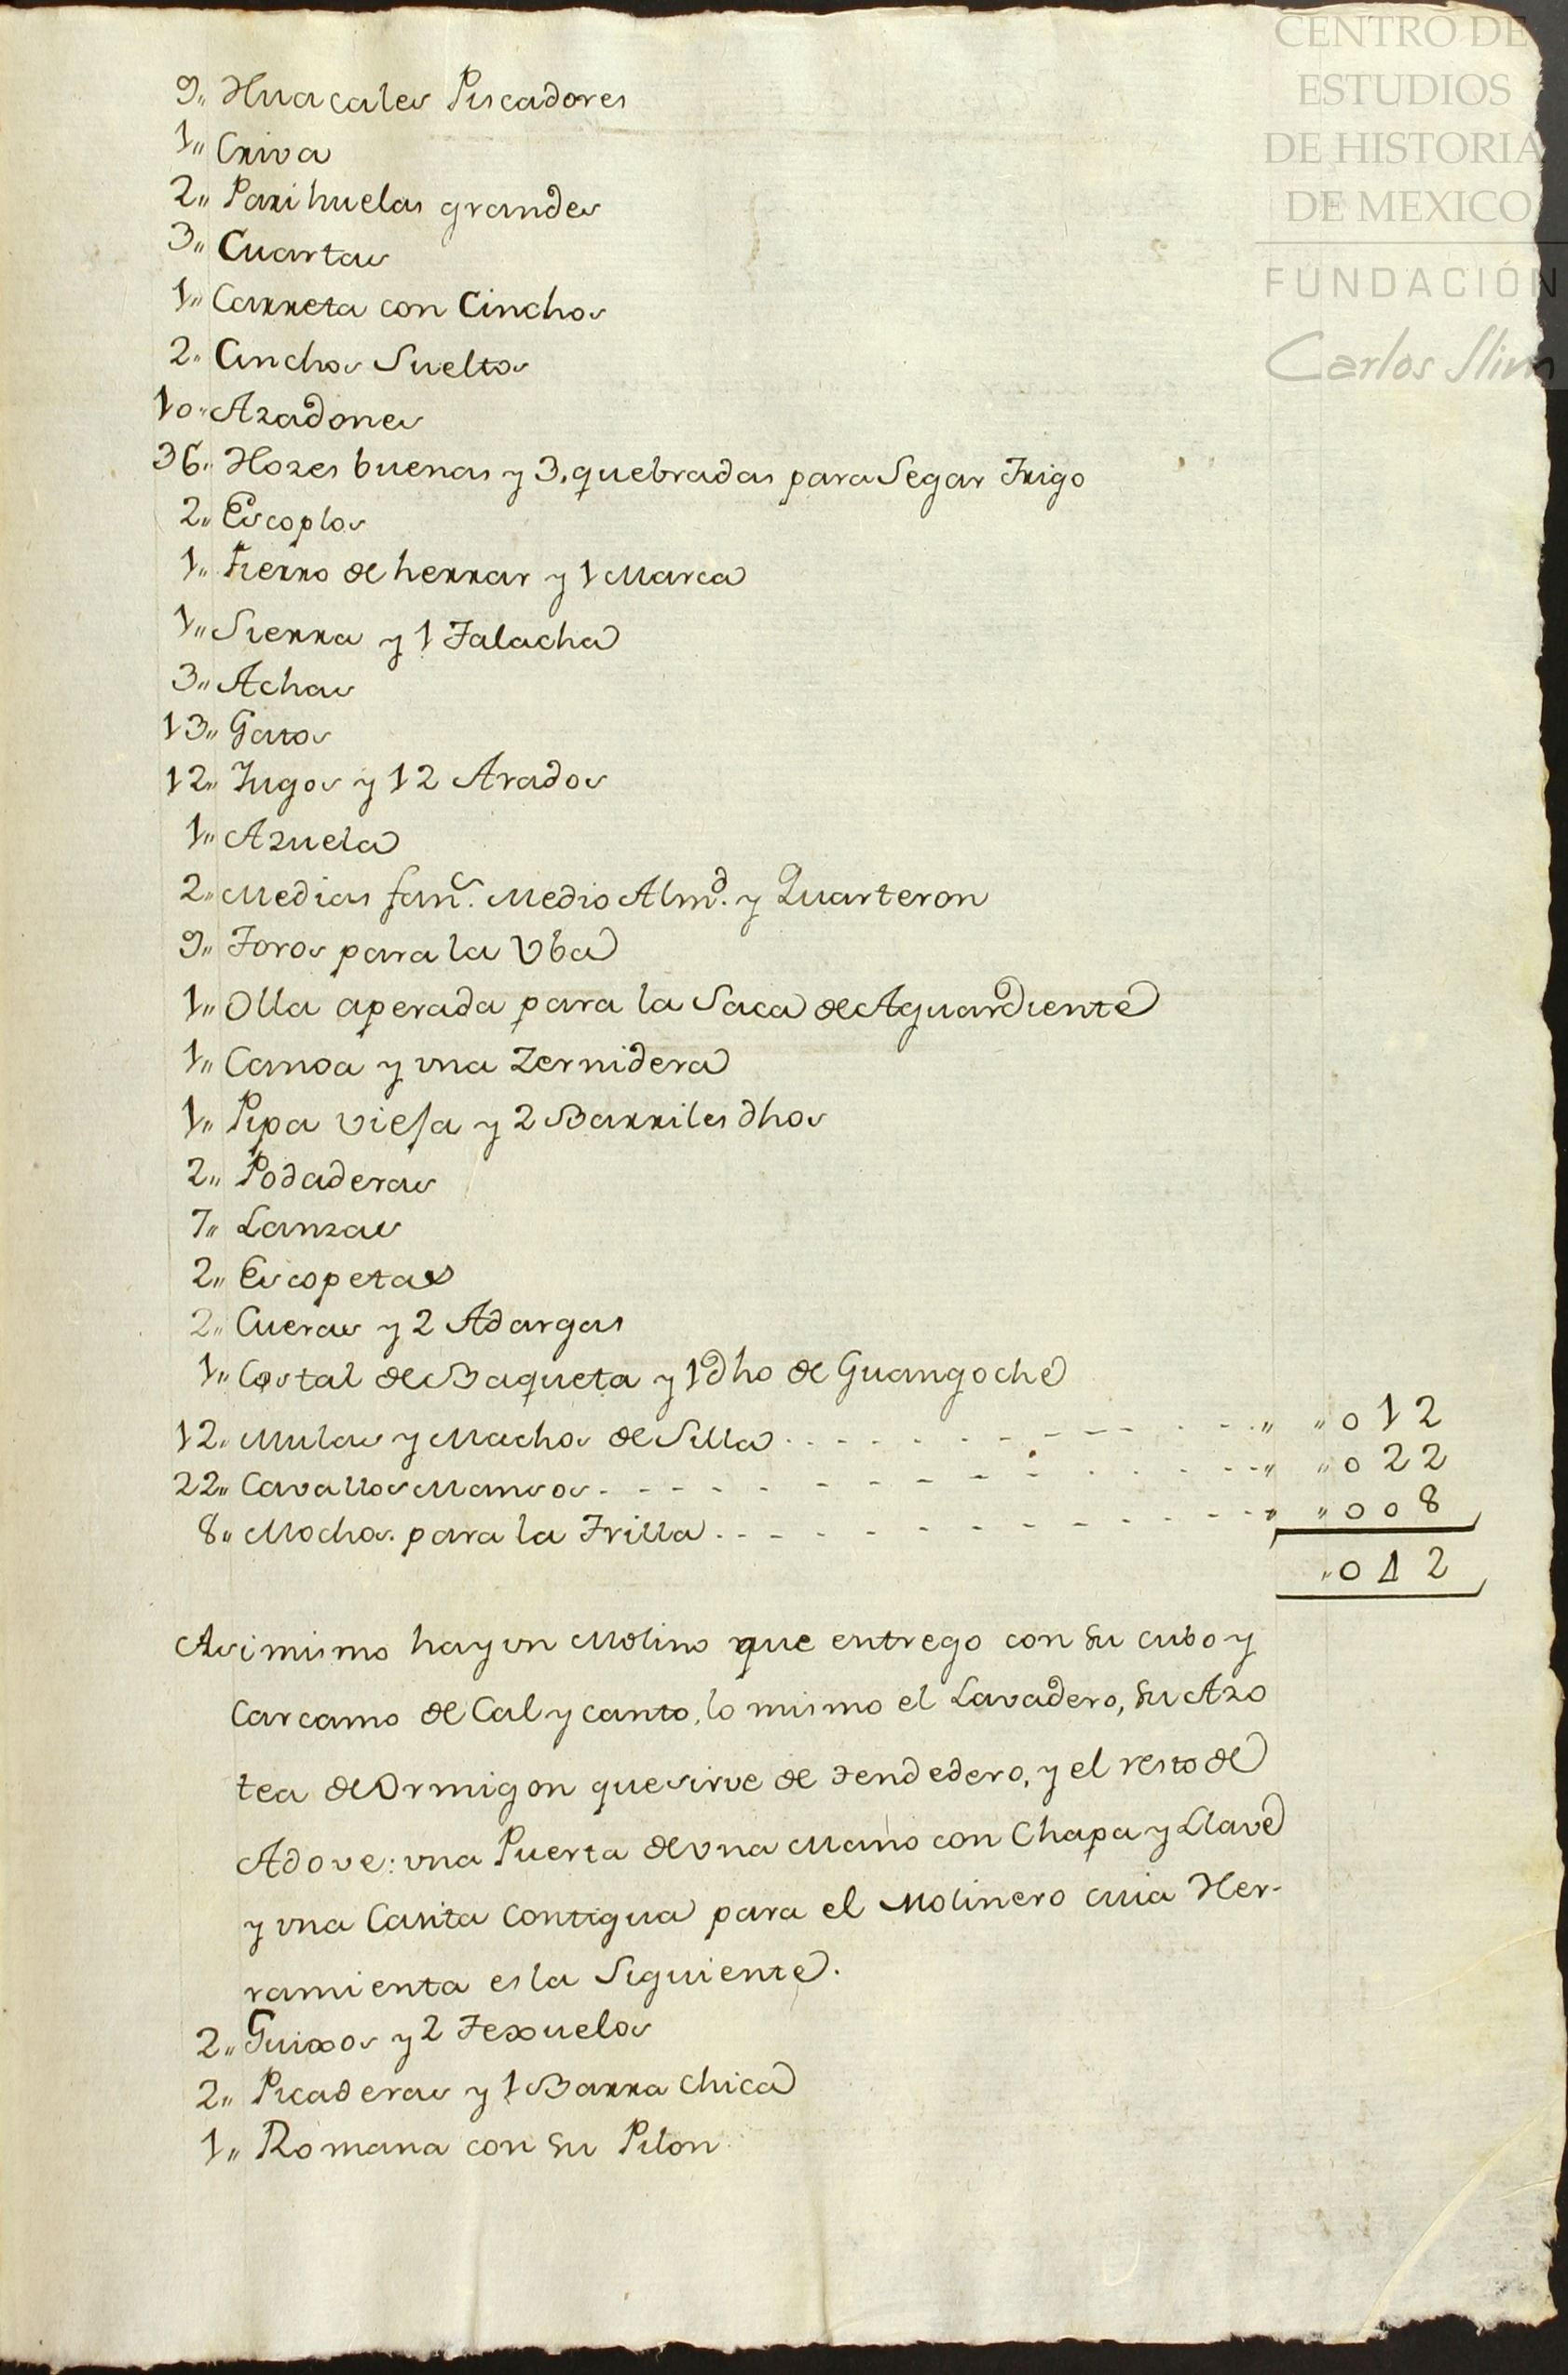 CENTRO DE
ESTUDIOS
DE HISTORIA
DE MEXICO
FUNDACIÓN
Carlos Slim
9,, Huacales Piscadores
1,, Criva
2,, Parihuelas grandes
3,, Cuartas
1,, Carreta con Cinchos
2,, Cinchos Sueltos
10,, Azadones
36,, Hozes buenas y 3, quebradas para Segar Trigo
2,, Escoplos
1,, Fierro de herrar y 1 Marca
1,, Sierra y 1 Talacha
3,, Achas
13,, Gatos
12,, Yugos y 12 Arados
1,, Azuela
2,, Medias fan.s Medio Alm.d y Quarteron
9,, Toros para la Vba
1,, Olla aperada para la Saca de Aguardiente
1,, Canoa y vna Zernidera
1,, Pipa vieja y 2 Barriles dhos
2,, Podaderas
7,, Lanzas
2,, Escopetas
2,, Cueras y 2 Adargas
1,, Costal de Baqueta y 1 dho de Guangoche
12,, Mulas y Machos de Silla . . . . - - - - - - . - . . ,, ,, 0 1 2
22,, Cavallos Mansos . - - - - - - - - - - . . . - - ,, ,, 0 2 2
8,, Mochos para la Trilla . . - - . - - - - - - - - - ,, ,, 0 0 8
,, 0 4 2
Asimismo hay vn Molino que entrego con su cubo y
Carcamo de Cal y canto, lo mismo el Lavadero, su Azo
tea de Ormigon que sirve de tendedero, y el resto de
Adove: vna Puerta de vna Mano con Chapa y Llave
y vna Casita Contigua para el Molinero cuia Her-
ramienta es la Siguiente.
2,, Guixos y 2 Texuelos
2,, Picaderas y 1 Barra Chica
1,, Romana con su Pilon